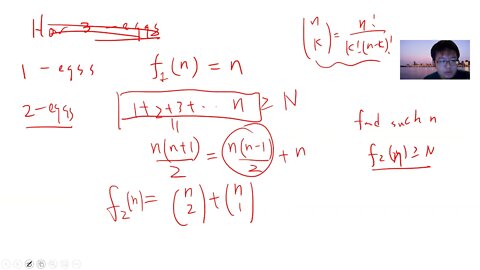 Has 3-eggs
1-eggs f₁(n) = n
2-eggs 1+2+3+... n ≥ N
||
n(n+1)/2 = n(n-1)/2 + n
f₂(n) = (n 2) + (n 1)
(n k) = n!/k!(n-k)!
find such n
f₂(n) ≥ N